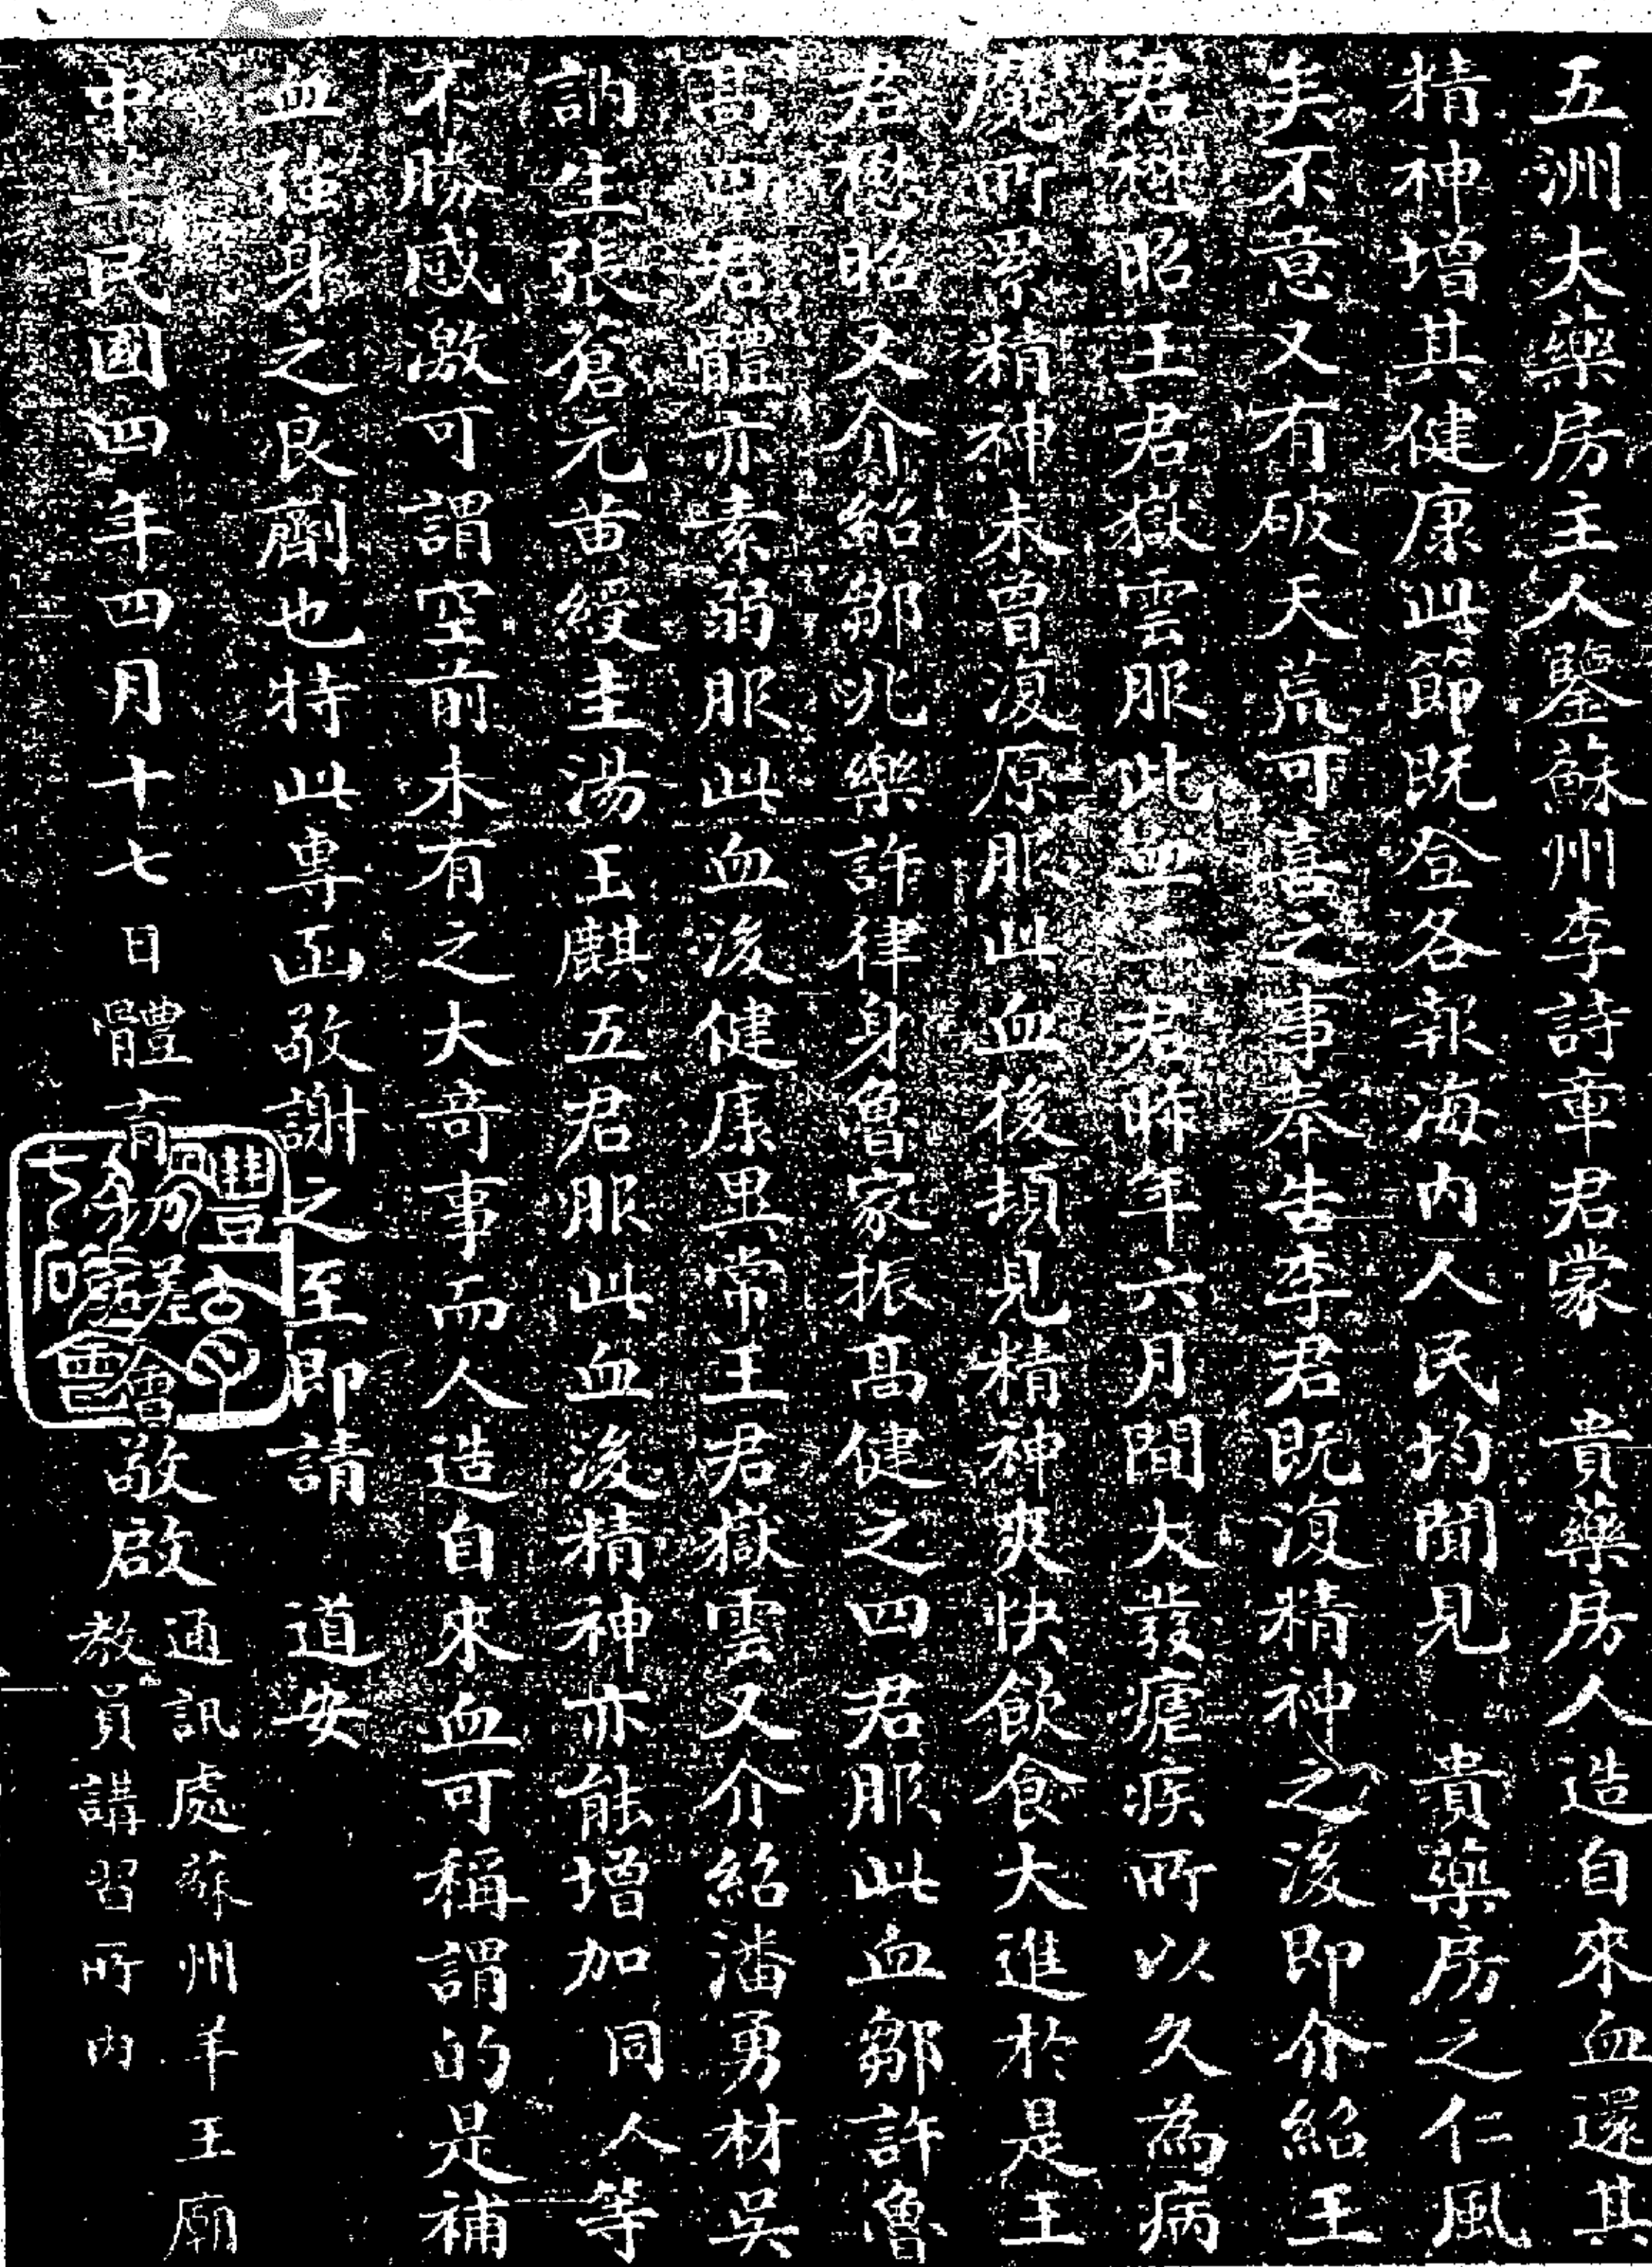 五洲大藥房主人鑒蘇州李詩章君蒙　貴藥房人造自來血還其
精神增其健康此節既登各報海内人民均聞見　貴藥房之仁風
矣不意又有破天荒可喜之事奉告李君既復精神之後即介紹王
君懋昭王君嶽雲服此血二君昨年六月間大發瘧疾所以久為病
魔所累精神未曾復原服此血後頓見精神爽快飲食大進於是王
君懋昭又介紹鄒兆樂許律身魯家振高健之四君服此血鄒許魯
高四君體亦素弱服此血後健康異常王君嶽雲又介紹潘勇材吳
訥生張蒼元黄綬圭湯王麒五君服此血後精神亦能增加同人等
不勝感激可謂空前未有之大奇事而人造自來血可稱謂的是補
血強身之良劑也特此專函敬謝之至即請　道安
中華民國四年四月十七日體育會敬啟
通訊處蘇州羊王廟
教員講習所内